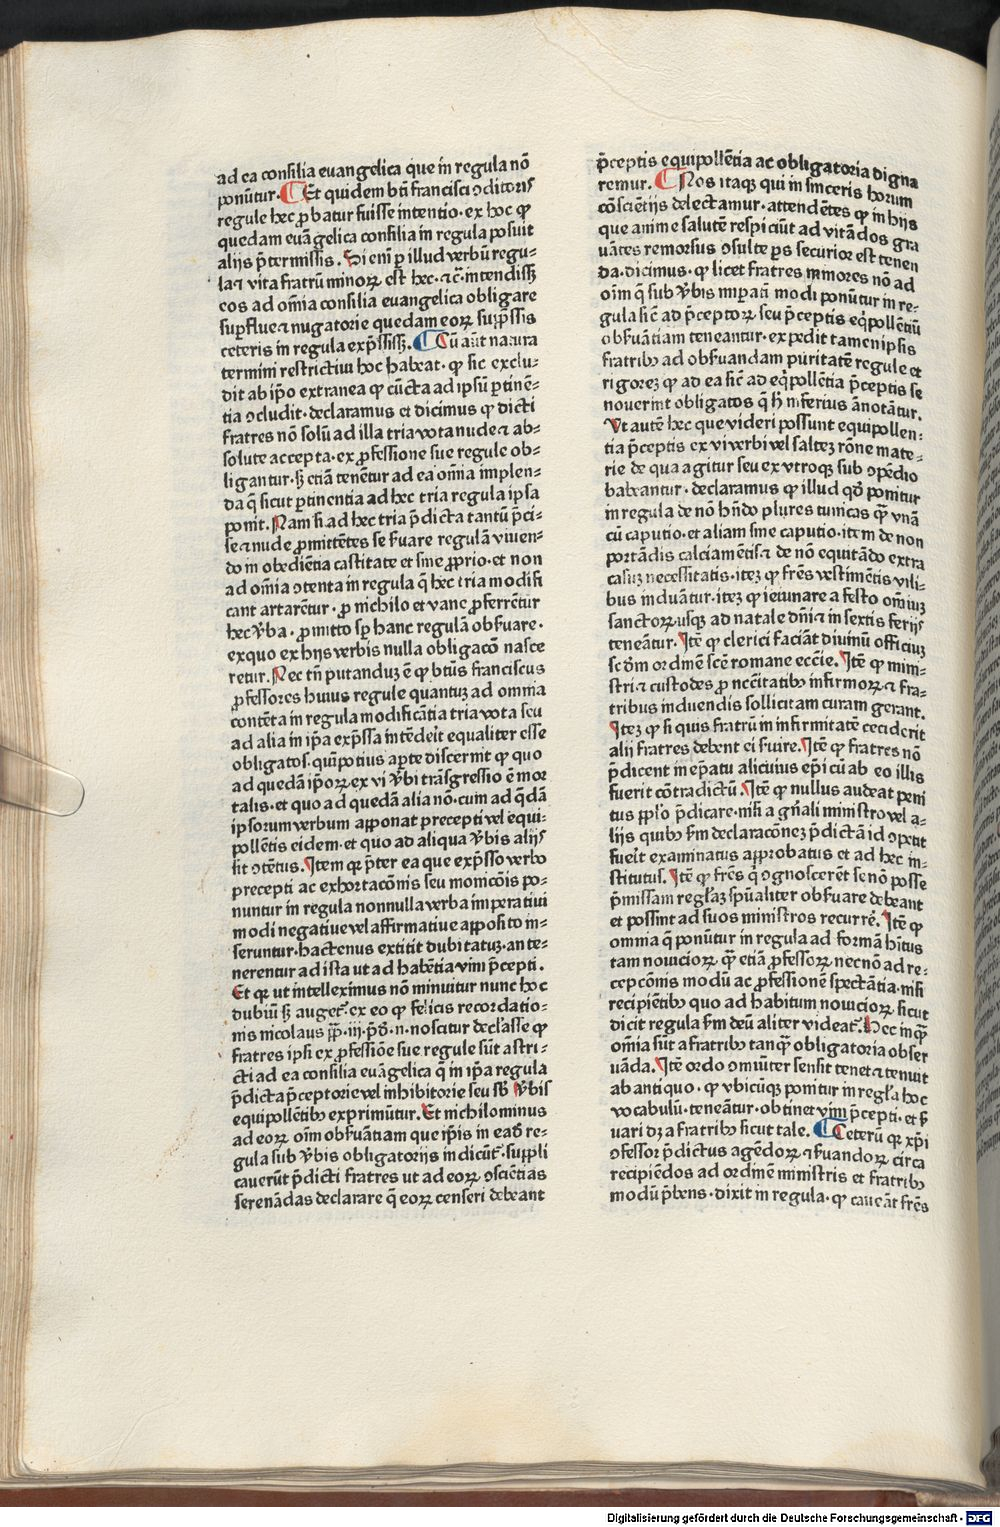 ad ea consilia euangelica que in regula nō
ponūtur. Et quidem bt̄i francisci ↄditoris
regule hec probatur fuisse intentio. ex hoc ꝙ
quedam euāgelica consilia in regula posuit
alijs p̄termissis. Si eniꝫ ꝑ illud verbū regu⸗
la ⁊ vita fratrū minorꝝ est hec. ⁊c̄. intendissꝫ
eos ad om̄ia consilia euangelica obligare
suꝑflue ⁊ nugatorie quedam eorꝝ supp̄ssis
ceteris in regula exp̄ssissꝫ. Cū aūt natura
termini restrictiui hoc habeat. ꝙ sic exclu⸗
dit ab ip̄o extranea ꝙ cūcta ad ipsū ꝑtinē⸗
tia ↄcludit. declaramus et dicimus ꝙ dicti
fratres nō solū ad illa tria vota nude ⁊ ab⸗
solute accepta. ex ꝓfessione sue regule ob⸗
ligantur. sꝫ etiā tenētur ad ea om̄ia implen⸗
da q̄ sicut ꝑtinentia ad hec tria regula ipsa
ponit. Nam si ad hec tria p̄dicta tantū p̄ci⸗
se ⁊ nude ꝓmittētes se ẜuare regulā viuen⸗
do in obediētia castitate et sine ꝓprio. et non
ad om̄ia ↄtenta in regula q̄ hec tria modifi
cant artarētur. ꝓ nichilo et vane ꝓferrētur
hec v̄ba. ꝓmitto sp̄ hanc regulā obẜuare.
exquo ex hijs verbis nulla obligacō nasce
retur. Nec tn̄ putanduꝫ ē ꝙ bt̄us franciscus
ꝓfessores huius regule quantuꝫ ad omnia
contēta in regula modificātia tria vota seu
ad alia in ip̄a exp̄ssa intēdeit equaliter esse
obligatos. quī potius aꝑte discernit ꝙ quo
ad quedā ip̄orꝝ ex vi v̄bi trāsgressio ē mor
talis. et quo ad quedā alia nō. cum ad q̄dā
ipsorum verbum apponat precepti vel equi⸗
pollētis eidem. et quo ad aliqua v̄bis alijs
sit ↄtētus. Item qꝛ p̄ter ea que exp̄sso verbo
precepti ac exhortacōnis seu monicōis po⸗
nuntur in regula nonnulla verba imperatiui
modi negatiue vel affirmatiue apposito in⸗
seruntur. hactenus extitit dubitatuꝫ. an te⸗
nerentur ad ista ut ad habētia vim p̄cepti.
Et qꝛ ut intelleximus nō minuitur nunc hoc
dubiū sꝫ auget᷑. ex eo ꝙ felicis recordatio⸗
nis nicolaus pp̄. iii. p̄d̄. n. noscitur declᷓasse ꝙ
fratres ipsi ex ꝓfessiōe sue regule sūt astri⸗
cti ad ea consilia euāgelica q̄ in ip̄a regula
p̄dicta p̄ceptorie vel inhibitorie seu sb̄ v̄bis
equipollētibꝰ exprimūtur. Et nichilominus
ad eorꝝ oīm obẜuātiam que ip̄is in ead̄ re⸗
gula sub v̄bis obligatorijs indicūt᷑. suppli
cauerūt p̄dicti fratres ut ad eorꝝ ↄsciētias
serenādas declarare q̄ eorꝝ censeri debeant
p̄ceptis equipollētia ac obligatoria digna
remur. Nos itaqꝫ qui in sinceris horum
cōsciētijs delectamur. attendētes ꝙ in hijs
que anime salutē respiciūt ad vitādos gra
uātes remorsus ↄsulte ꝑs securior est tenen
da. dicimus. ꝙ licet fratres minores nō ad
oīm q̄ sub v̄bis imꝑati modi ponūtur in re⸗
gula sic̄ ad p̄ceptorꝝ seu p̄ceptis eq̄pollētiū
obẜuātiam teneantur. expedit tamen ipsis
fratribꝰ ad obẜuandam puritatē regule et
rigoreꝫ ꝙ ad ea sic̄ ad eq̄pollētia p̄ceptis se
nouerint obligatos q̄ h̄ inferius ānotātur.
Ut autē hec que videri possunt equipollen⸗
tia p̄ceptis ex vi verbi vel salteꝫ rōne mate⸗
rie de qua agitur seu ex vtroqꝫ sub ↄpēdio
habeantur. declaramus ꝙ illud qd̄ ponitur
in regula de nō hn̄do plures tunicas qꝫ vnā
cū caputio. et aliam sine caputio. item de non
portādis calciamētis. ⁊ de nō equitādo extra
casuꝫ necessitatis. iteꝫ ꝙ fr̄es vestimētis vili⸗
bus induātur. iteꝫ ꝙ ieiunare a festo om̄iuꝫ
sanctorꝝ usqꝫ ad natale dn̄i ⁊ in sextis ferijs
teneātur. Itē ꝙ clerici faciāt diuinū officiuꝫ
scd̄m ordinē sc̄e romane ecc̄ie. Itē ꝙ mini⸗
stri ⁊ custodes ꝓ nc̄citatibꝰ infirmorꝝ ⁊ fra⸗
tribus induendis sollicitam curam gerant.
Iteꝫ ꝙ si quis fratrū in infirmitatē ceciderit
alij fratres debent ei ẜuire. Itē ꝙ fratres nō
p̄dicent in ep̄atu alicuius ep̄i cū ab eo illis
fuerit cōtradictū. Itē ꝙ nullus audeat peni
tus ppl̄o p̄dicare. nisi a gn̄ali ministro vel a⸗
lijs quibꝰ ẜm declaracōneꝫ p̄dictā id ↄpetit
fuer̄t examinatus approbatus et ad hec in⸗
stitutus. Itē ꝙ fr̄es q̄ ↄgnoscerēt se nō posse
p̄missam regl̄aꝫ spūaliter obẜuare debeant
et possint ad suos ministros recurrē. Itē ꝙ
omnia q̄ ponūtur in regula ad formā hītus
tam nouiciorꝝ qꝫ etiā ꝓfessorꝝ. necnō ad re⸗
cepcōnis modū ac ꝓfessionē spectātia. nisi
recipiētibꝰ quo ad habitum nouiciorꝝ sicut
dicit regula ẜm deū aliter videat᷑. Hec inqꝫ
om̄ia sūt a fratribꝰ tanqꝫ obligatoria obser
uāda. Itē ordo ↄmūiter sensit tenet ⁊ tenuit
ab antiquo. ꝙ vbicūqꝫ ponitur in regl̄a hoc
vocabulū. teneātur. obtinet vim p̄cepti. et ẜ
uari dꝫ a fratribꝰ sicut tale. Ceterū qꝛ xp̄i
ↄfessor p̄dictus agēdorꝝ ⁊ ẜuandorꝝ circa
recipiēdos ad ordinē ministris et fratribꝰ
modū p̄bens. dixit in regula. ꝙ caueāt fr̄es
Digitalisierung gefördert durch die Deutsche Forschungsgemeinschaft - DFG